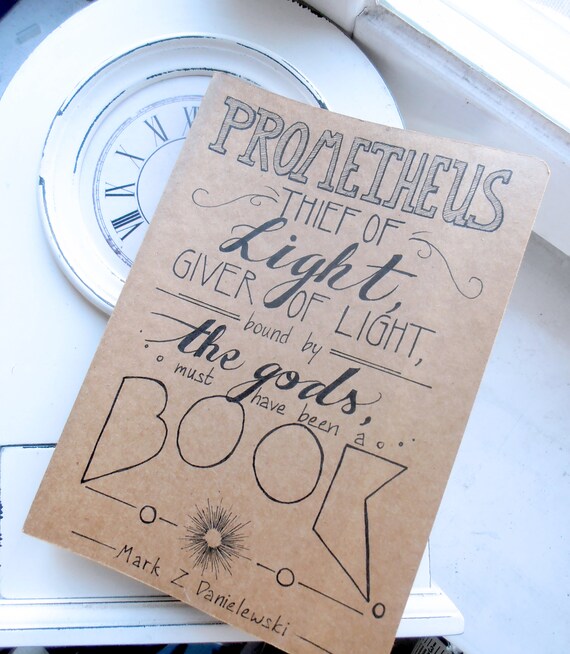 PROMETHEUS
THIEF OF
Light,
GIVER OF LIGHT,
bound by
the gods,
must have been a
BOOK
Mark Z Danielewski
VI
VII
VIII
IX
X
XI
XII